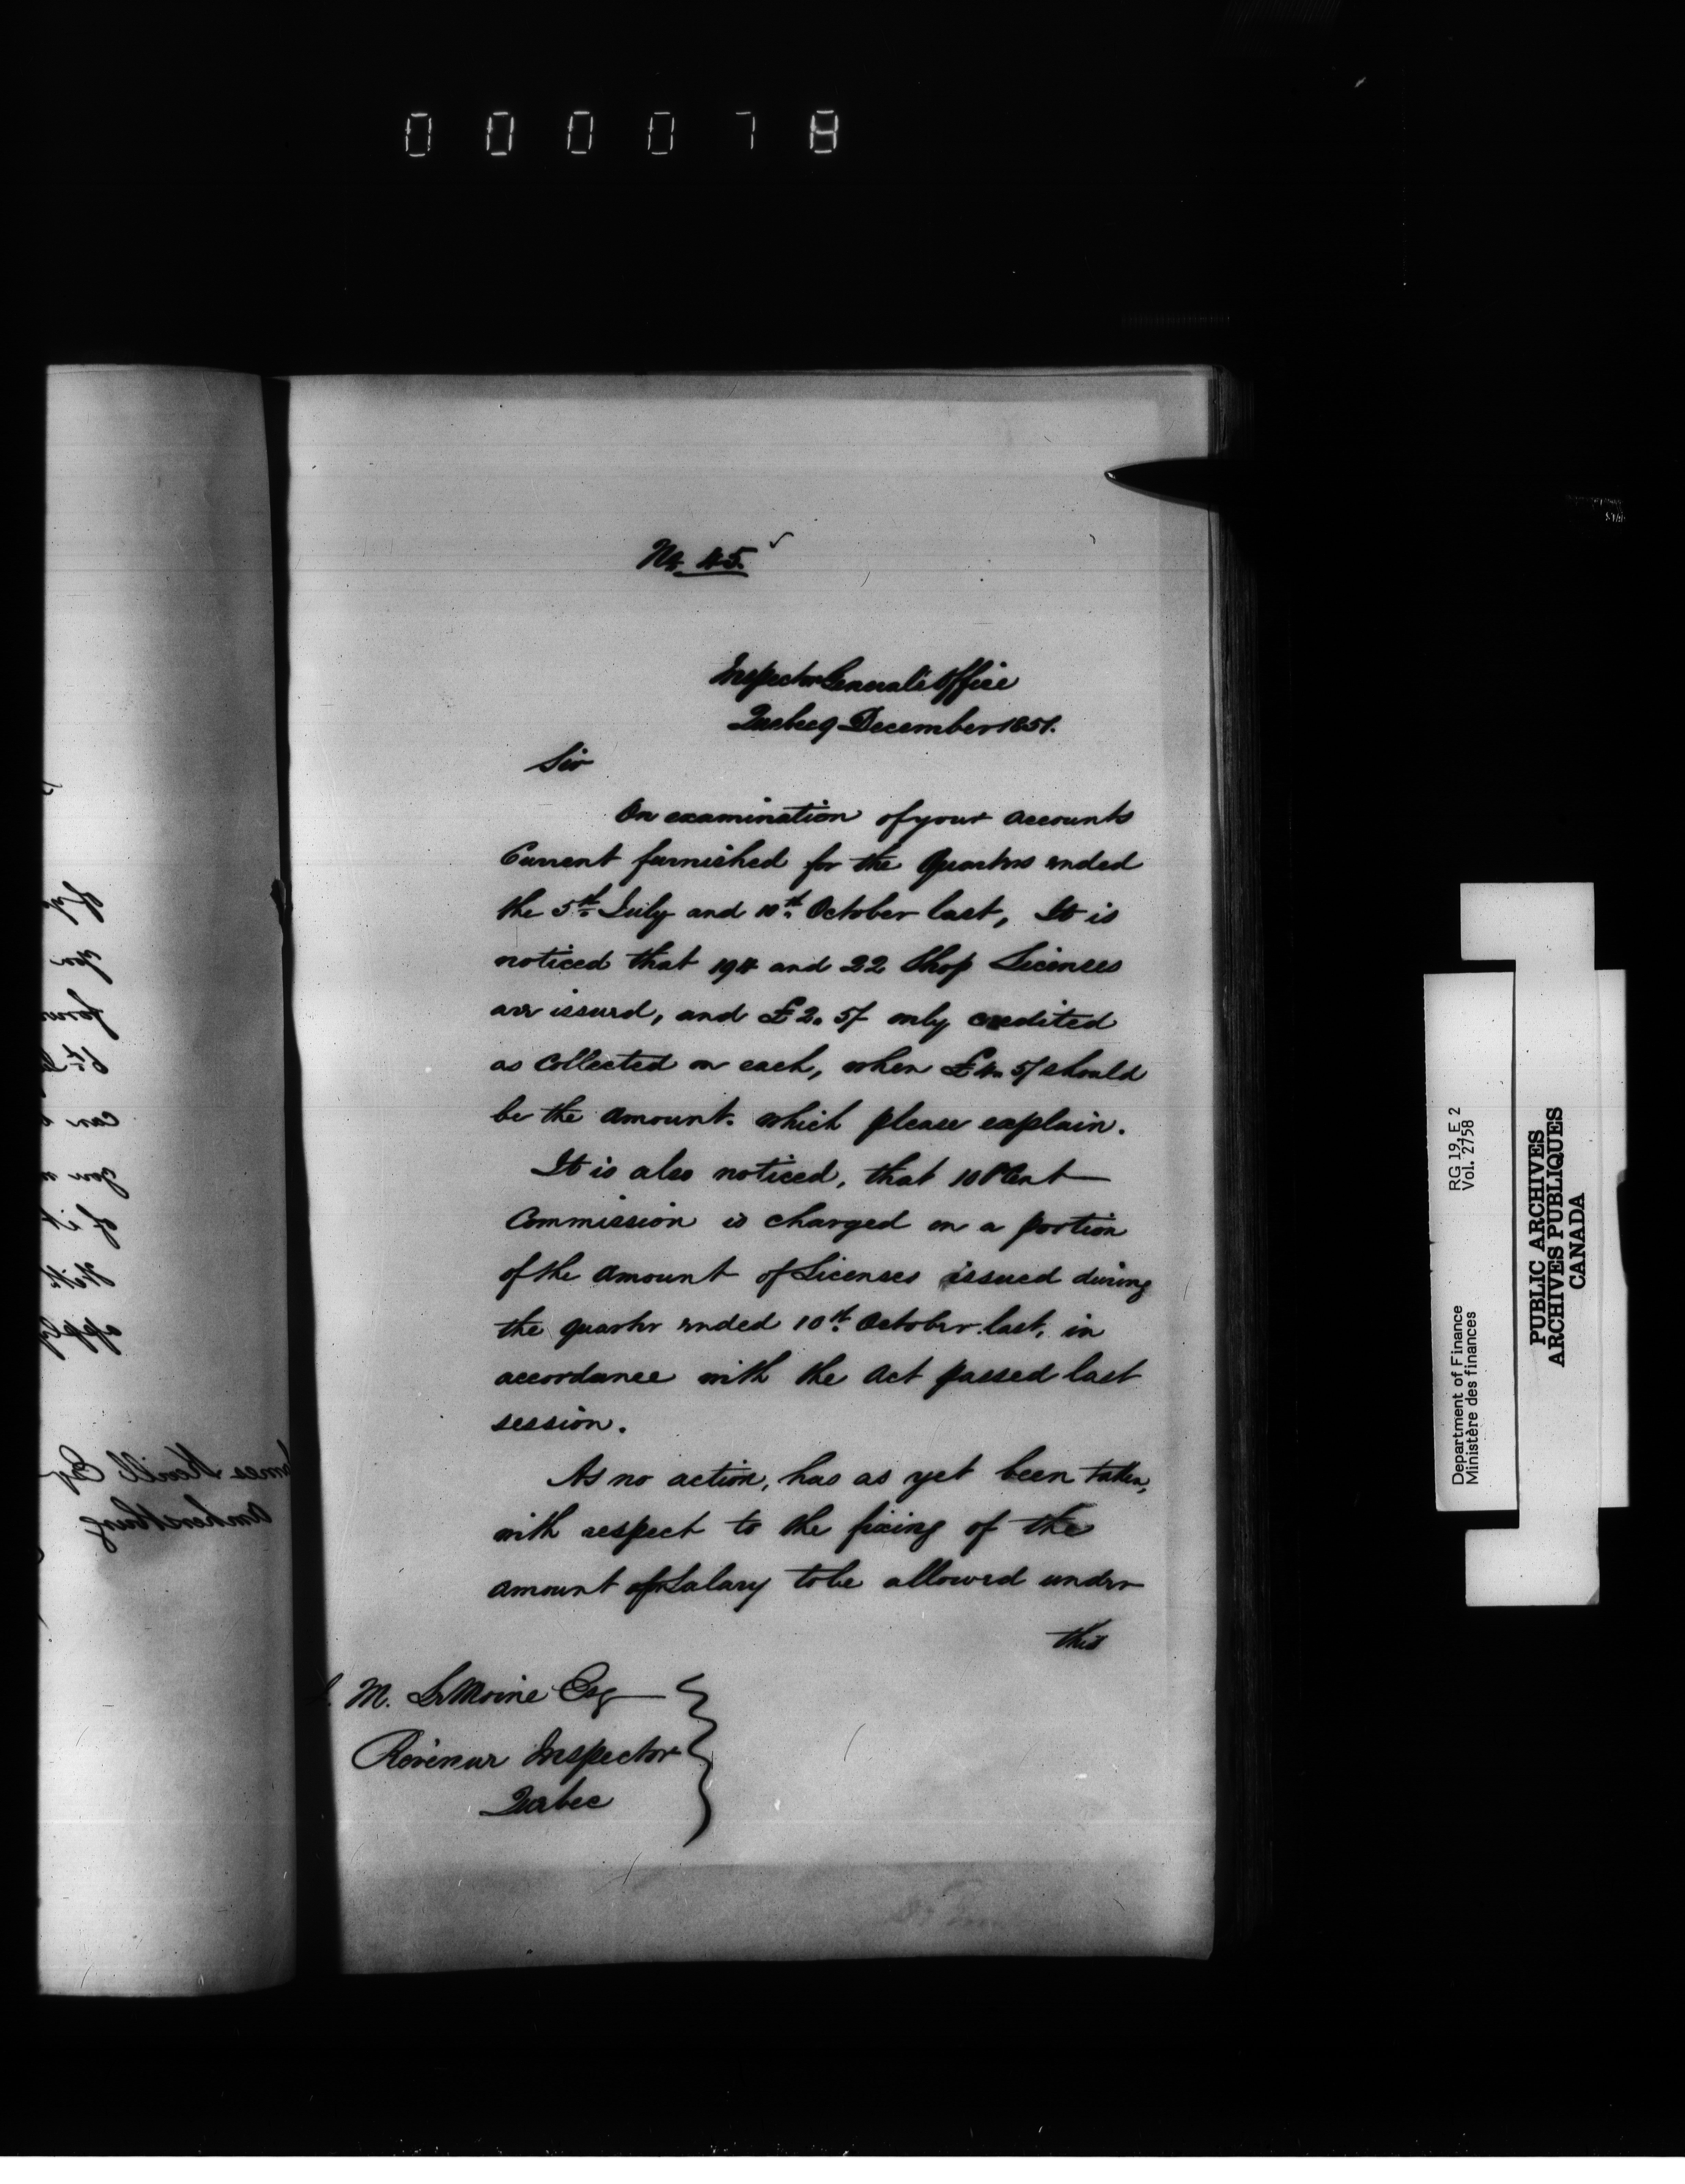 000078
No. 45.
Inspector Generals Office
Quebec 9 December 1851.
Sir
On examination of your accounts
Current furnished for the Quarters ended
the 5th July and 10th October last, It is
noticed that 194 and 22 Shop Licenses
are issued, and £2. 5/ only credited
as collected on each, when £4. 5/ should
be the amount. which please explain.
It is also noticed, that 10 P Cent
Commission is charged on a portion
of the amount of Licenses issued during
the quarter ended 10th October last, in
accordance with the Act passed last
session.
As no action, has as yet been taken,
with respect to the fixing of the
amount of Salary to be allowed under
this
M. LeMoine Esq
Revenue Inspector
Quebec
Department of Finance RG 19, E 2
Ministère des finances Vol. 2758
PUBLIC ARCHIVES
ARCHIVES PUBLIQUES
CANADA